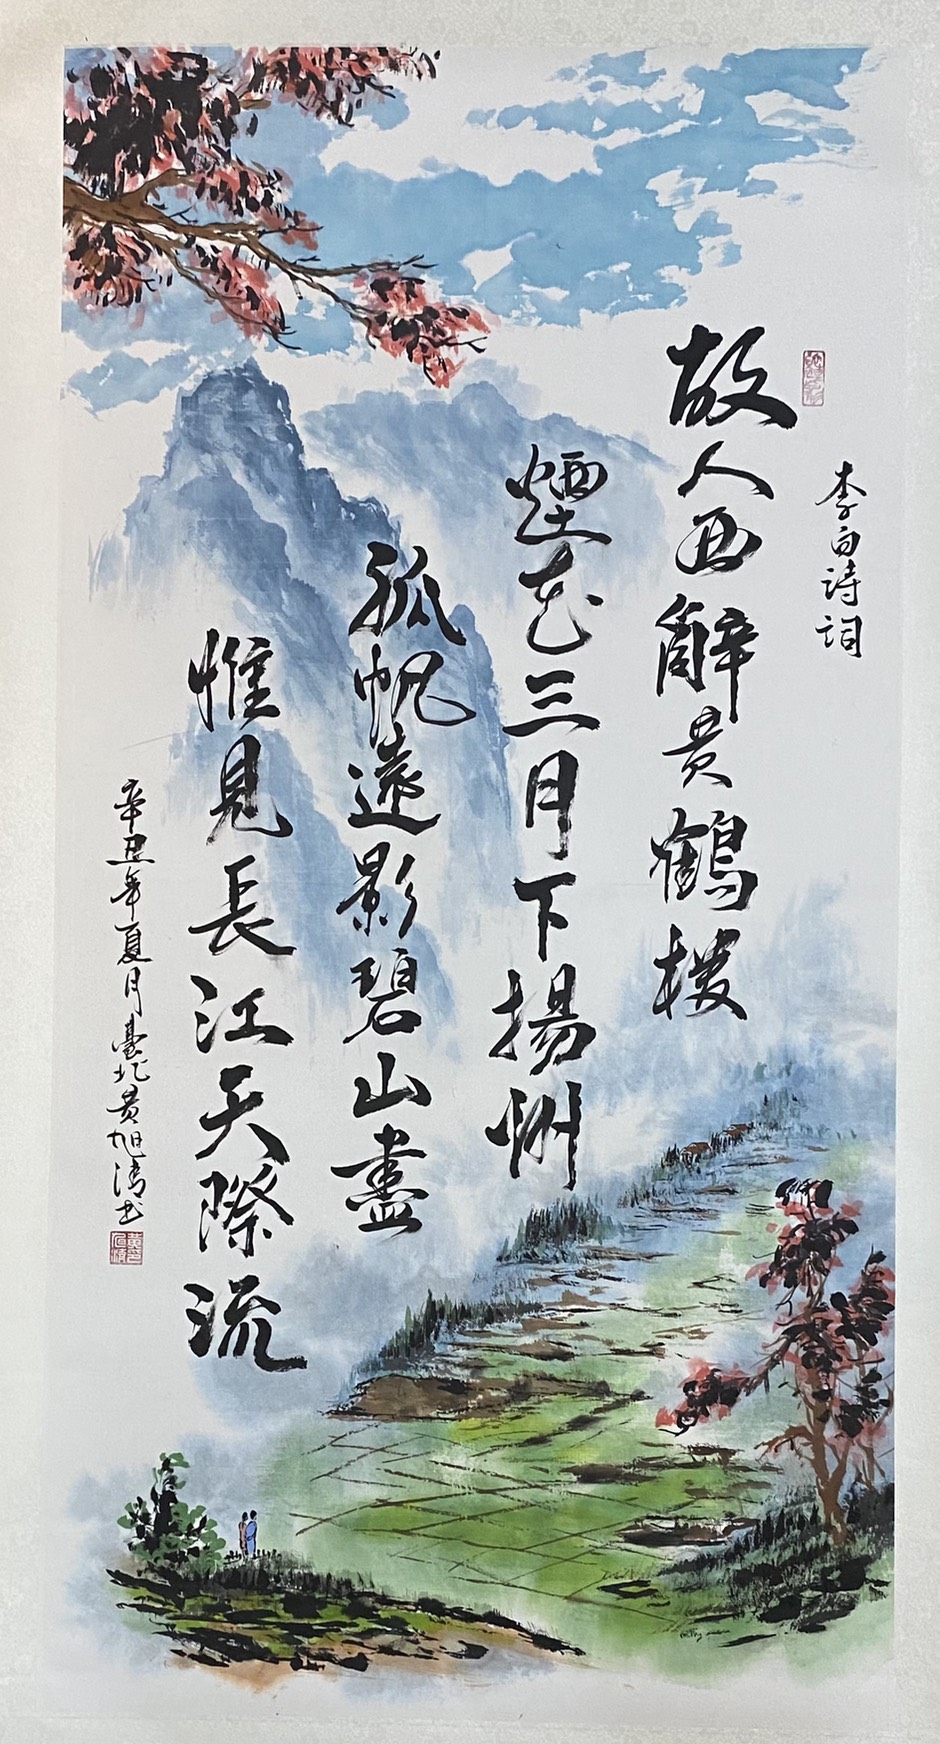 李白詩詞
故人西辭黃鶴樓
煙花三月下揚州
孤帆遠影碧山盡
惟見長江天際流
辛丑年夏月臺北黃旭清書